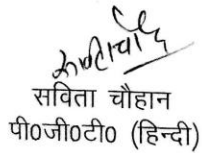 सविता चौहान
पी०जी०टी० (हिन्दी)